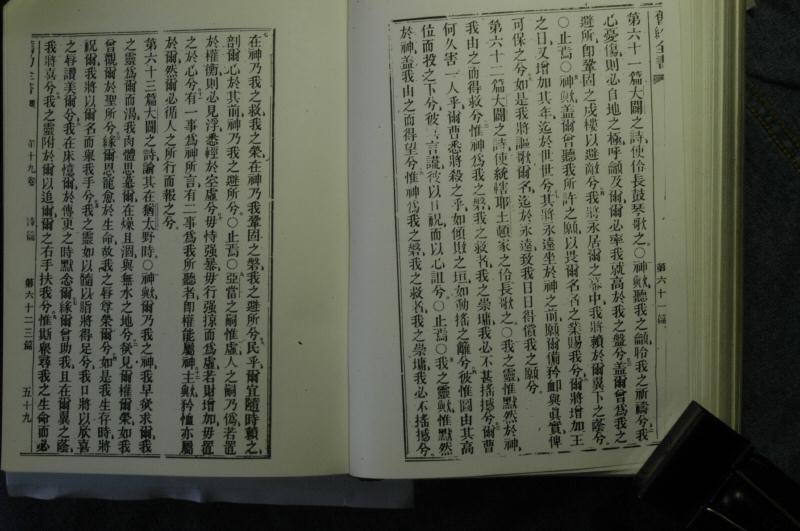 第六十一篇
第六十一篇大闢之詩使伶長鼓琴歌之○神歟聽我之籲聆我之祈禱兮我
心憂傷則必自地之極呼籲及爾爾必率我就高於我之盤兮蓋爾曾爲我之
避所卽鞏固之戍樓以避敵兮我將永居爾之幕中我將賴於爾翼下之蔭兮
○止焉○神歟蓋爾曾聽我所許之願以畏爾名者之業賜我兮爾將增加王
之日又增加其年迄於世世兮其將永遠坐於神之前願爾備矜卹與眞實俾
可保之兮如是我將謳歌爾名迄於永遠致我日日得償我之願兮
第六十二篇大闢之詩使統轄耶土頓家之伶長歌之○我之靈惟默然於神
我由之而得救兮惟神爲我之磐我之救者我之崇墉我必不甚搖撼兮爾曹
何久害一人乎爾曹悉將殺之乎如傾攲之垣如動搖之籬兮彼惟圖由其高
位而投之下兮彼喜言謊彼以口祝而以心詛兮○止焉○我之靈歟惟默然
於神蓋我由之而得望兮惟神爲我之磐我之救者我之崇墉我必不搖撼兮
在神乃我之救我之榮在神乃我鞏固之磐我之避所兮民乎爾宜隨時賴之
剖爾心於其前神乃我之避所兮○止焉○亞當之嗣惟虛人之嗣乃僞若置
於權衡則必見浮悉輕於全虛兮毋恃強暴毋行強掠而爲虛若財增加毋置
之於心兮有一事爲神所言有二事爲我所聽者卽權能屬神主歟矜恤亦屬
於爾然爾必循人之所行而報之兮
第六十三篇大闢之詩論其在猶太野時○神歟爾乃我之神我早尋求爾我
之靈爲爾而渴我肉體思慕爾在燥且涸與無水之地兮欲見爾權爾榮如我
曾觀爾於聖所兮緣爾恩寵愈於生命故我之脣尊榮爾兮如是我生存時將
祝爾我將以爾名而舉我手兮我之靈如以髓以脂將得足兮我口將以欣喜
之脣讚美爾兮我在床憶爾於傳更之時默念爾緣爾曾助我且在爾翼之蔭
我將喜兮我之靈附於爾以追爾爾之右手扶我兮惟斯衆尋我之生命而必
十九卷 詩篇 第六十二三篇 五十九